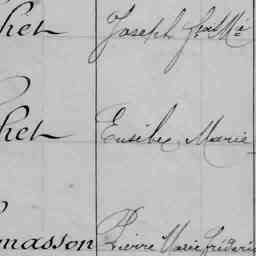 het Joseph frois Mie
het Eusèbe Marie
masson Pierre Marie frédéric